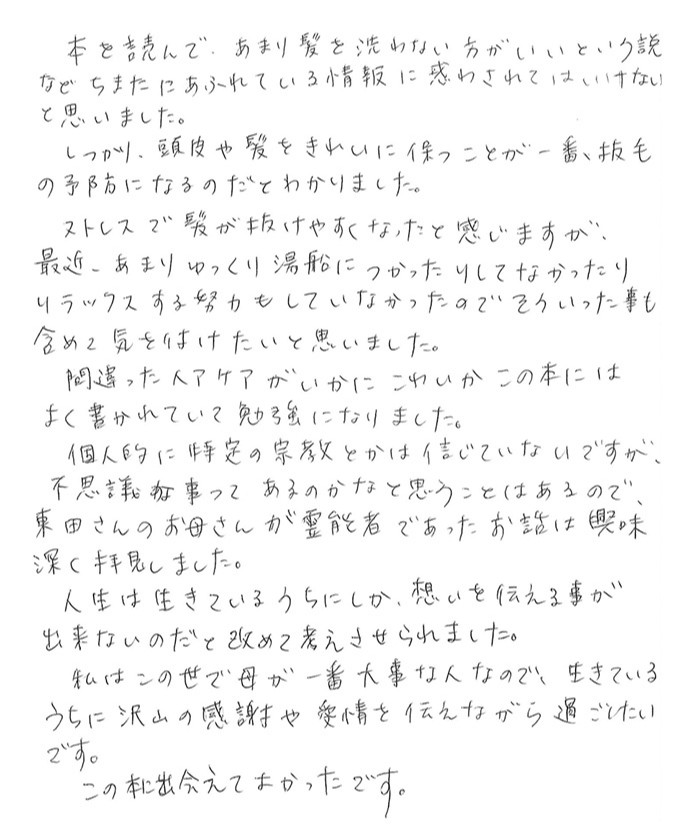 本を読んで、あまり髪を洗わない方がいいという説
などちまたにあふれている情報に惑わされてはいけない
と思いました。
しっかり、頭皮や髪をきれいに保つことが一番、抜毛
の予防になるのだとわかりました。
ストレスで髪が抜けやすくなったと感じますが、
最近、あまりゆっくり湯船につかったりしてなかったり
リラックスする努力もしていなかったのでそういった事も
含めて気を付けたいと思いました。
間違ったヘアケアがいかにこわいかこの本には
よく書かれていて勉強になりました。
個人的に特定の宗教とかは信じていないですが、
不思議な事ってあるのかなと思うことはあるので、
東田さんのお母さんが霊能者であったお話は興味
深く拝見しました。
人生は生きているうちにしか、想いを伝える事が
出来ないのだと改めて考えさせられました。
私はこの世で母が一番大事な人なので、生きている
うちに沢山の感謝や愛情を伝えながら過ごしたい
です。
この本に出会えてよかったです。